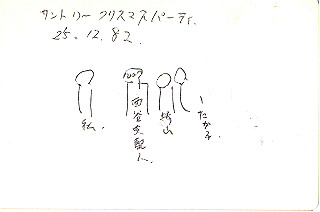 サントリークリスマスパーティ.
25.12.82
私.
西谷支配人.
横山
たか子.